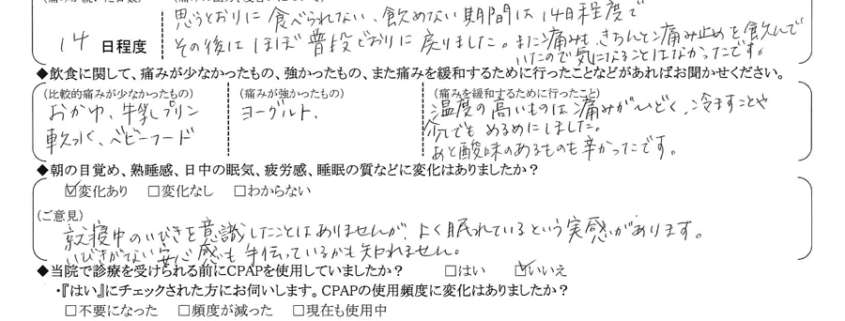 思うとおりに食べられない、飲めない期間は14日程度で
14 日程度
その後はほぼ普段どおりに戻りました。また痛みも、きちんと痛み止めを飲んで
いたので気になることはなかったです。
◆飲食に関して、痛みが少なかったもの、強かったもの、また痛みを緩和するために行ったことなどがあればお聞かせください。
(比較的痛みが少なかったもの)
おかゆ、牛乳プリン
軟水、ベビーフード
(痛みが強かったもの)
ヨーグルト、
(痛みを緩和するために行ったこと)
温度の高いものは痛みがひどく、冷ますことや
少しでもぬるめにしました。
あと酸味のあるものも辛かったです。
◆朝の目覚め、熟睡感、日中の眠気、疲労感、睡眠の質などに変化はありましたか?
☑変化あり □変化なし □わからない
(ご意見)
就寝中のいびきを意識したことはありませんが、よく眠れているという実感があります。
いびきがない安心感も手伝っているかも知れません。
◆当院で診療を受けられる前にCPAPを使用していましたか? □はい ☑いいえ
・『はい』にチェックされた方にお伺いします。CPAPの使用頻度に変化はありましたか?
□不要になった □頻度が減った □現在も使用中